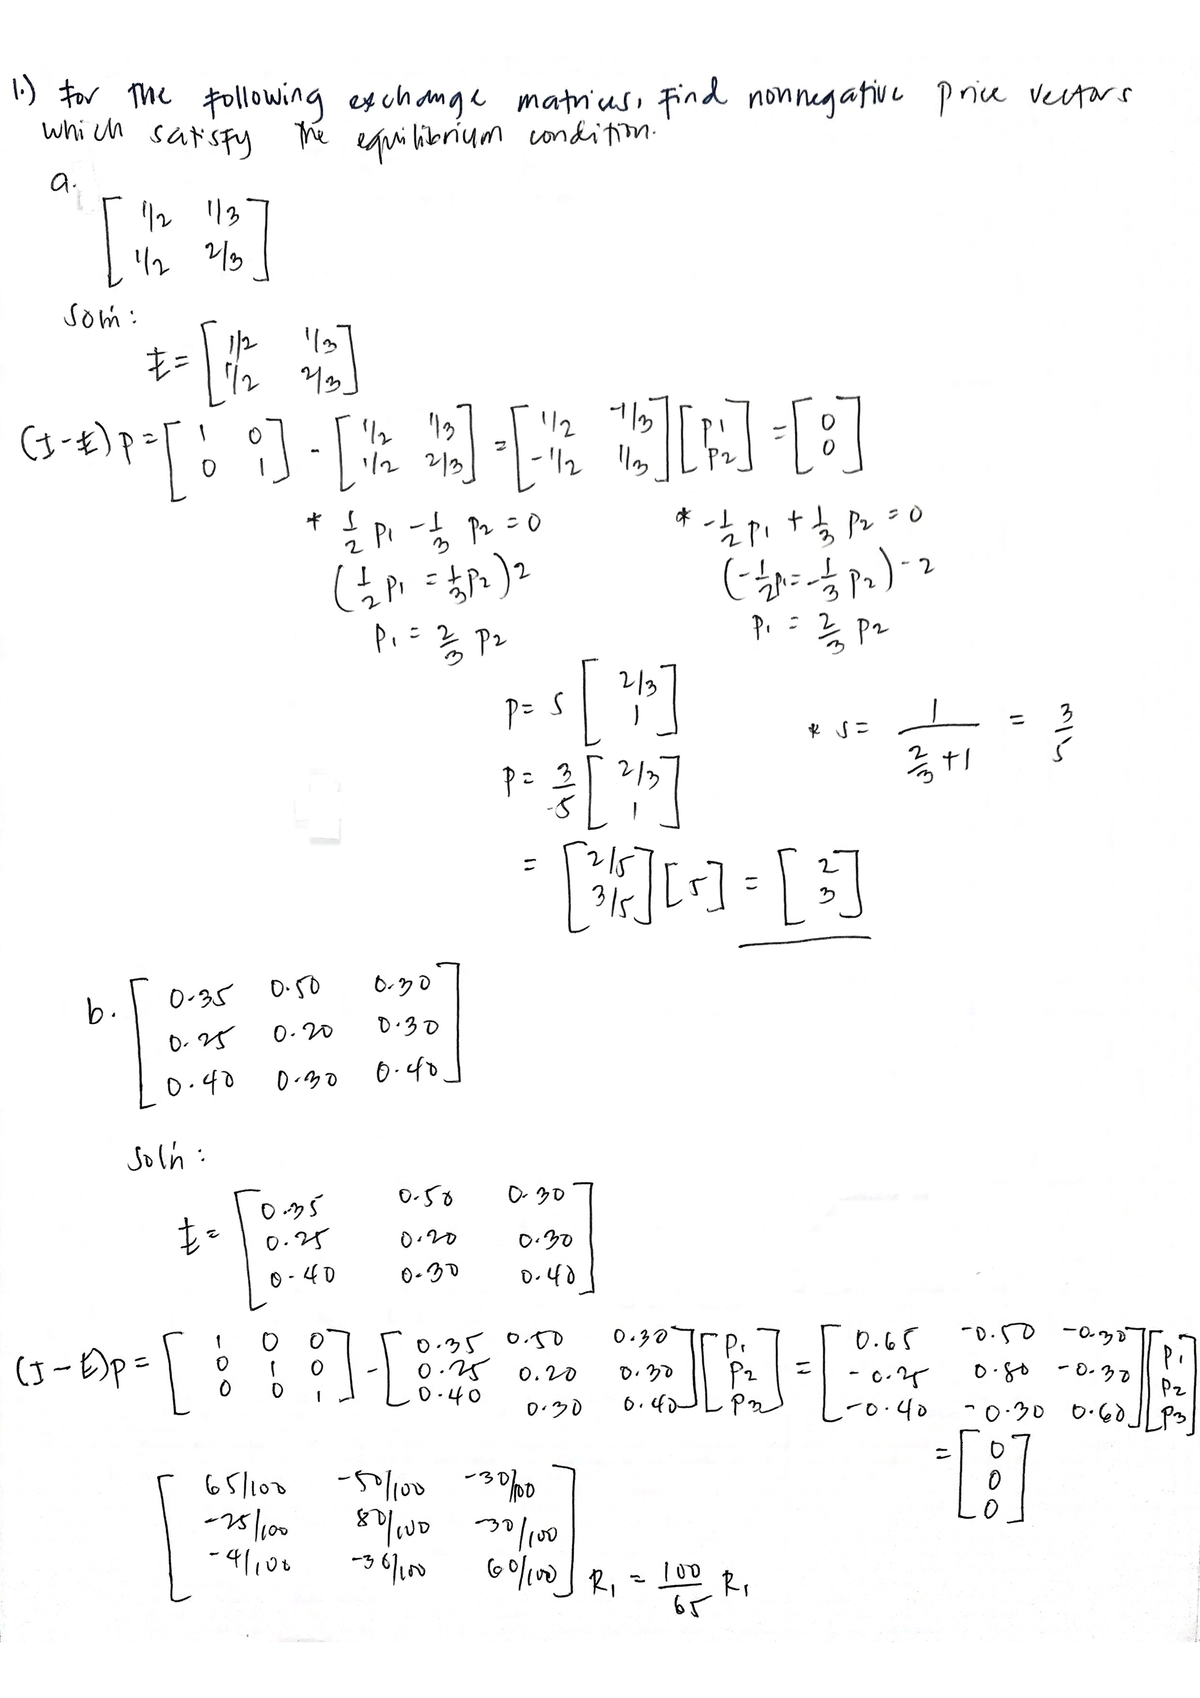 1.) For the following exchange matrices, Find nonnegative price vectors
which satisfy the equilibrium condition.
a.
[ 1/2 1/3
1/2 2/3 ]
Soln:
E = [ 1/2 1/3
1/2 2/3 ]
(I-E)p = [ 1 0
0 1 ] - [ 1/2 1/3
1/2 2/3 ] = [ 1/2 -1/3
-1/2 1/3 ] [ P1
P2 ] = [ 0
0 ]
* 1/2 P1 - 1/3 P2 = 0
(1/2 P1 = 1/3 P2) 2
P1 = 2/3 P2
* -1/2 P1 + 1/3 P2 = 0
(-1/2 P1 = -1/3 P2) -2
P1 = 2/3 P2
P = S [ 2/3
1 ]
* S = 1 / (2/3 + 1) = 3/5
P = 3/5 [ 2/3
1 ]
= [ 2/5
3/5 ] [5] = [ 2
3 ]
b. [ 0.35 0.50 0.30
0.25 0.20 0.30
0.40 0.30 0.40 ]
Soln:
E = [ 0.35 0.50 0.30
0.25 0.20 0.30
0.40 0.30 0.40 ]
(I-E)p = [ 1 0 0
0 1 0
0 0 1 ] - [ 0.35 0.50 0.30
0.25 0.20 0.30
0.40 0.30 0.40 ] [ P1
P2
P3 ] = [ 0.65 -0.50 -0.30
-0.25 0.80 -0.30
-0.40 -0.30 0.60 ] [ P1
P2
P3 ]
= [ 0
0
0 ]
[ 65/100 -50/100 -30/100
-25/100 80/100 -30/100
-4/100 -30/100 60/100 ] R1 = 100/65 R1